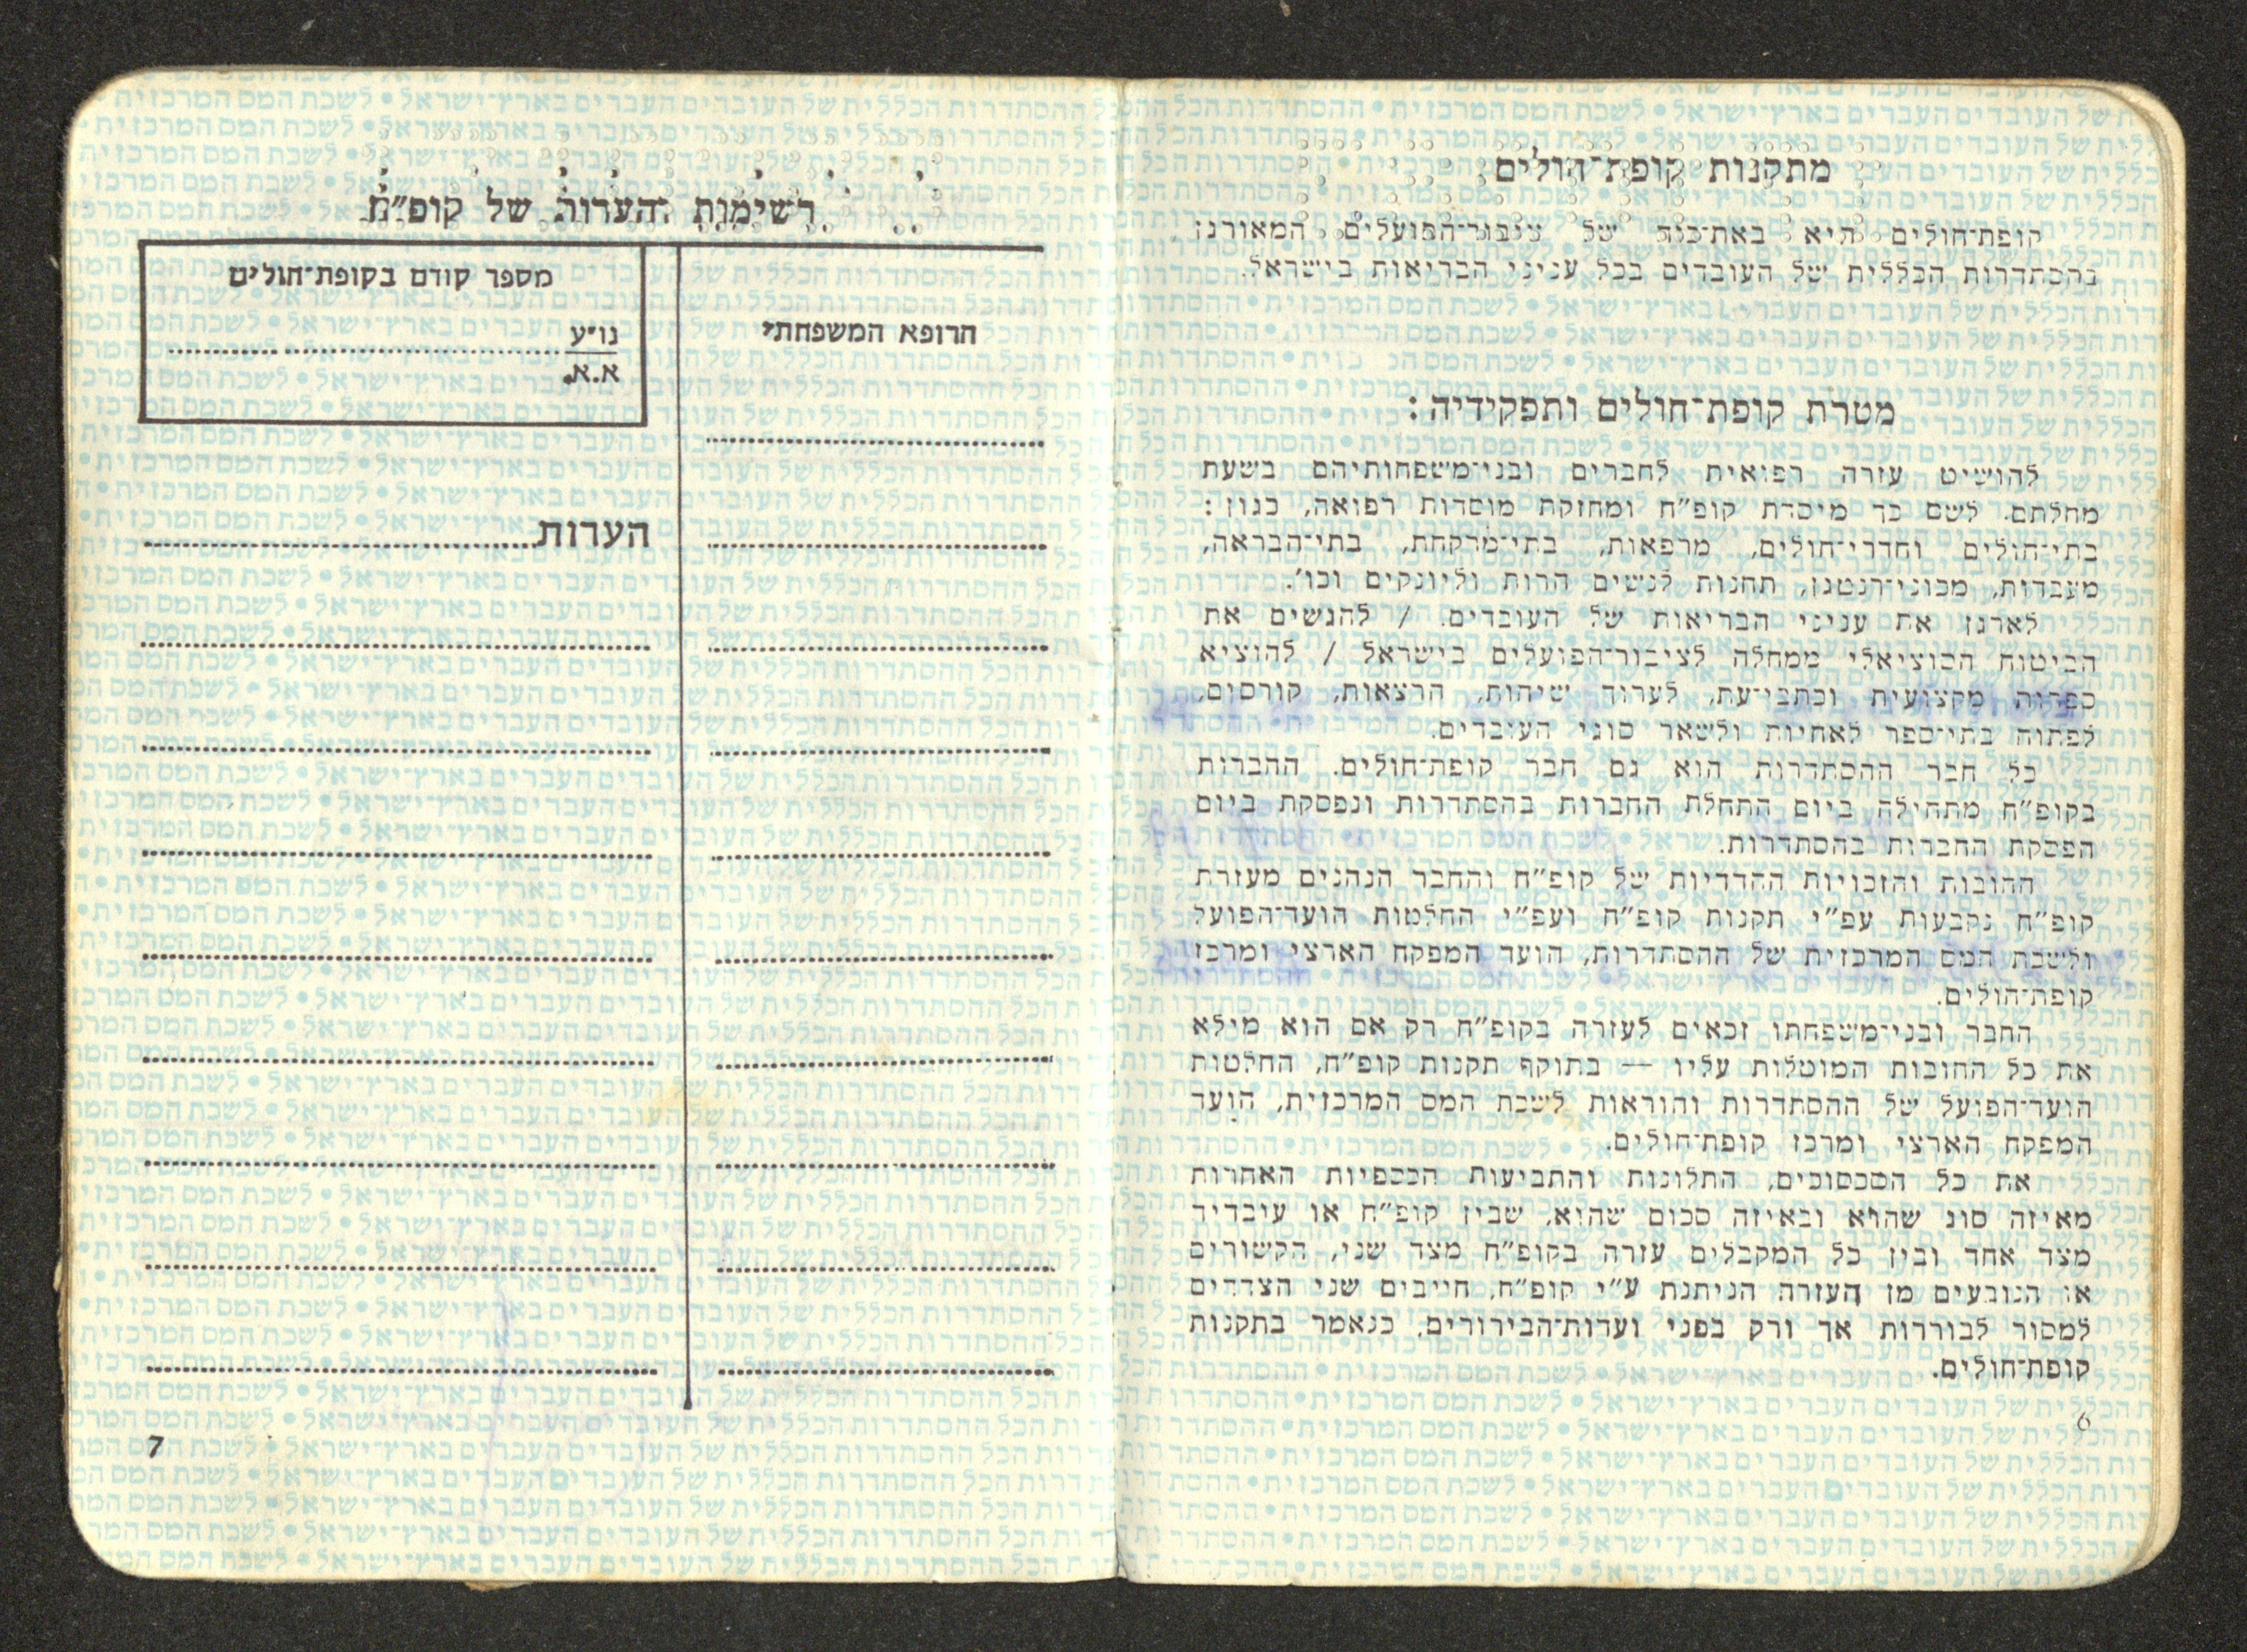 מתקנות קופת־חולים
קופת־חולים היא באת־כוח של ציבור־הפועלים המאורגן
בהסתדרות הכללית של העובדים בכל עניני הבריאות בישראל.
מטרת קופת־חולים ותפקידיה:
להושיט עזרה רפואית לחברים ובני־משפחותיהם בשעת
מחלתם. לשם כך מיסדת קופ״ח ומחזקת מוסדות רפואה, כגון:
בתי־חולים וחדרי־חולים, מרפאות, בתי־מרקחת, בתי־הבראה,
מעבדות, מכוני־רנטגן, תחנות לנשים הרות וליונקים וכו׳.
לארגן את עניני הבריאות של העובדים. / להגשים את
הביטוח הסוציאלי ממחלה לציבור־הפועלים בישראל / להוציא
ספרות מקצועית וכתבי־עת, לערוך שיחות, הרצאות, קורסים,
לפתוח בתי־ספר לאחיות ולשאר סוגי העובדים.
כל חבר ההסתדרות הוא גם חבר קופת־חולים. החברות
בקופ״ח מתחילה ביום התחלת החברות בהסתדרות ונפסקת ביום
הפסקת החברות בהסתדרות.
החובות והזכויות ההדדיות של קופ״ח והחבר הנהנים מעזרת
קופ״ח נקבעות עפ״י תקנות קופ״ח ועפ״י החלטות הועד־הפועל
ולשכת המס המרכזית של ההסתדרות, הועד המפקח הארצי ומרכז
קופת־חולים.
החבר ובני־משפחתו זכאים לעזרה בקופ״ח רק אם הוא מילא
את כל החובות המוטלות עליו — בתוקף תקנות קופ״ח, החלטות
הועד־הפועל של ההסתדרות והוראות לשכת המס המרכזית, הועד
המפקח הארצי ומרכז קופת־חולים.
את כל הסכסוכים, התלונות והתביעות הכספיות האחרות
מאיזה סוג שהוא ובאיזה סכום שהוא, שבין קופ״ח או עובדיה
מצד אחד ובין כל המקבלים עזרה בקופ״ח מצד שני, הקשורים
או הנובעים מן העזרה הניתנת ע״י קופ״ח, חייבים שני הצדדים
למסור לבוררות אך ורק בפני ועדות־הבירורים, כנאמר בתקנות
קופת־חולים.
6
רשימות והערות של קופ״ח
הרופא המשפחתי
מספר קודם בקופת־חולים
נו״ע
א.א.
הערות
7